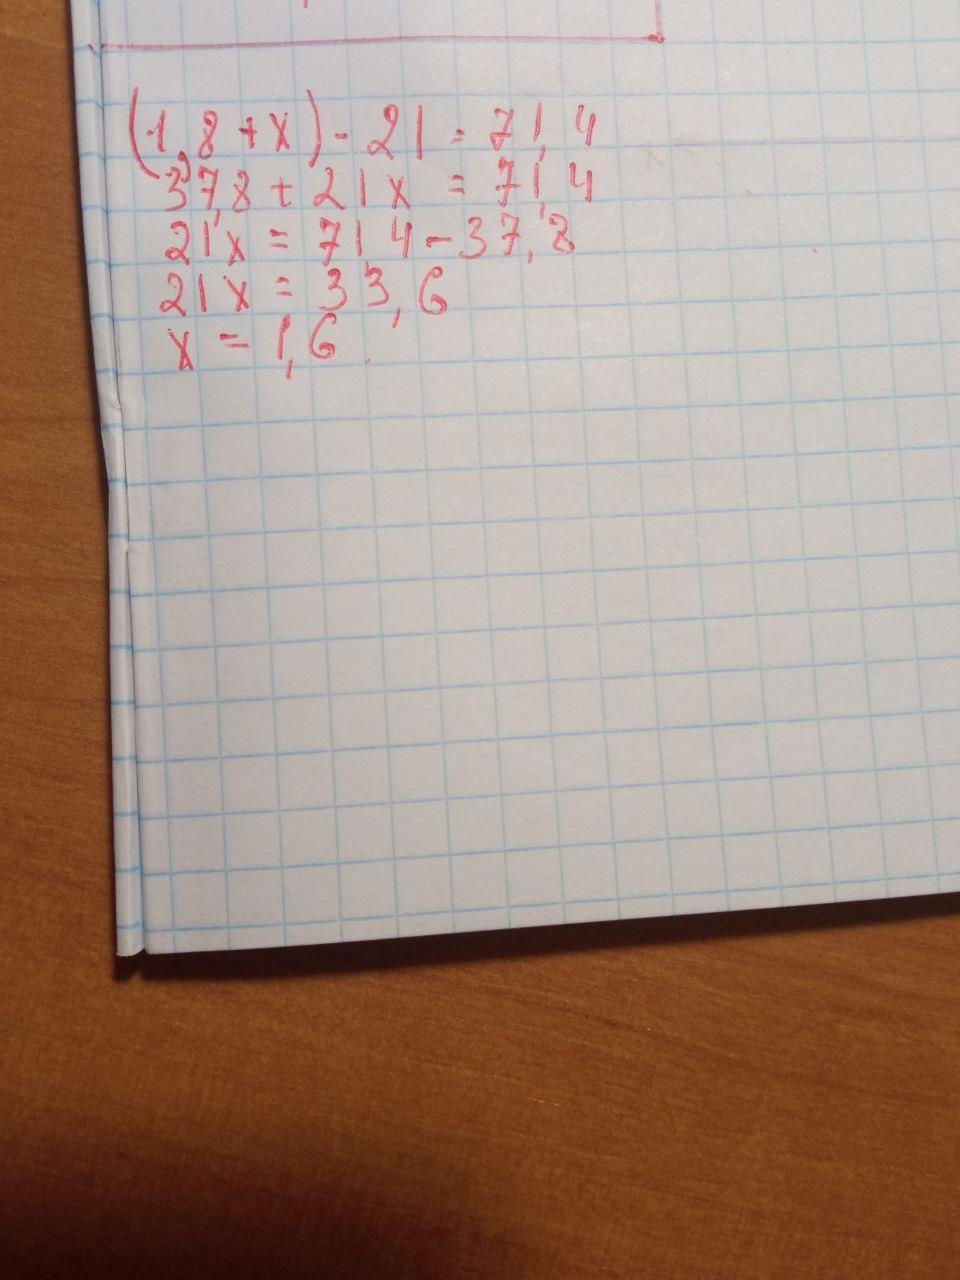 (1,8+x)-21=71,4
37,8+21x=71,4
21x=71,4-37,8
21x=33,6
x=1,6